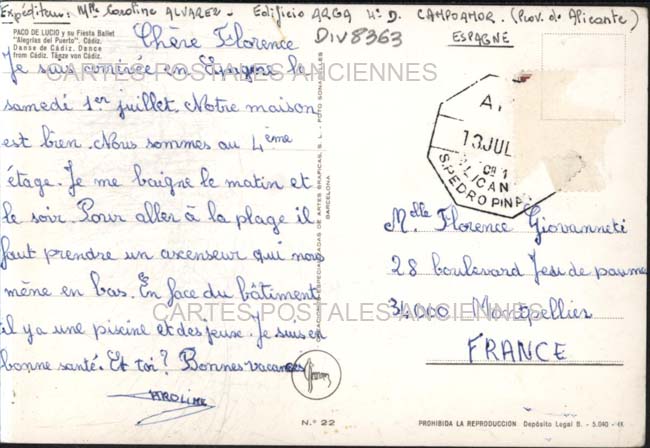 Expéditeur: Mlle Caroline ALVAREZ - Edificio ARGA 4º D. CAMPOAMOR. (Prov. de Alicante)
ESPAGNE
DIV8363
PACO DE LUCIO y su Fiesta Ballet
"Alegrías del Puerto". Cádiz.
Danse de Cádiz. Dance
from Cádiz. Tänze von Cádiz.
Chère Florence
Je suis arrivée en Espagne le
samedi 1er juillet. Notre maison
est bien. Nous sommes au 4ème
étage. Je me baigne le matin et
le soir. Pour aller à la plage il
faut prendre un axenseur qui nous
mène en bas. En face du bâtiment
il y a une piscine et des jeux. Je suis en
bonne santé. Et toi? Bonnes vacances
CAROLINE
CREACIONES ESPECIALIZADAS DE ARTES GRAFICAS, S. L. - FOTO SONABELLES
BARCELONA
13 JUL
ALICAN
S.PEDRO PINA
Melle Florence Giovanneti
28 boulevard Jeu de paume
34000 Montpellier
FRANCE
N.º 22
PROHIBIDA LA REPRODUCCION Depósito Legal B. - 5.040
CARTES POSTALES ANCIENNES
CARTES POSTALES ANCIENNES